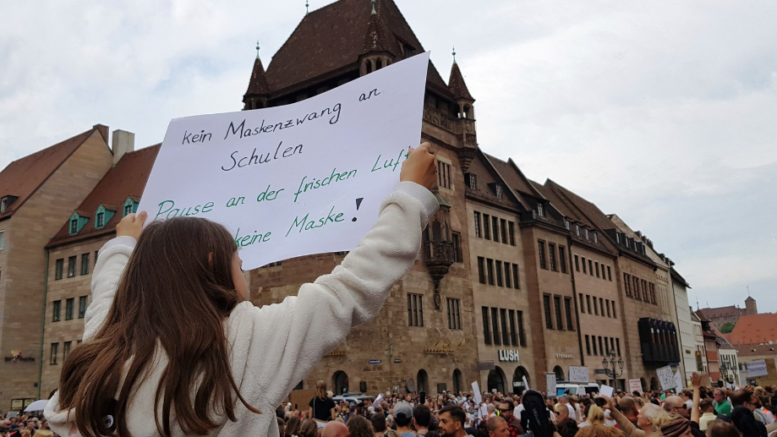 kein Maskenzwang an
Schulen
Pause an der frischen Luft
keine Maske!
LUSH